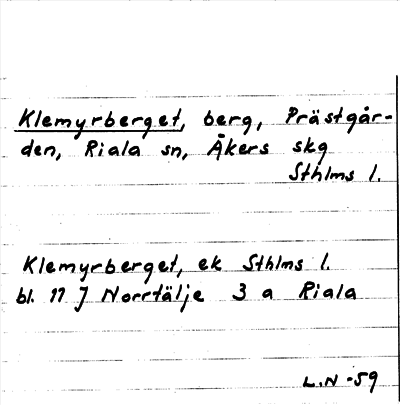 Klemyrberget, berg, Prästgår-
den, Riala sn, Åkers skg
Sthlms l.
Klemyrberget, ek Sthlms l.
bl. 11 J Norrtälje 3 a Riala
L.N -59